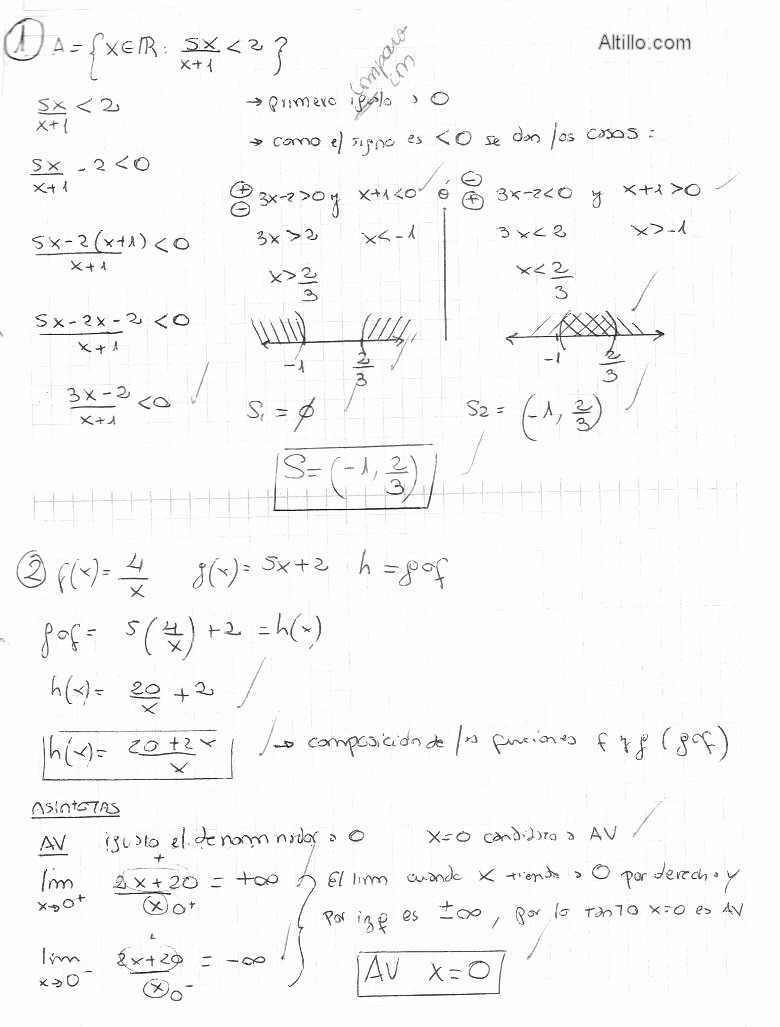 Altillo.com
① A = {x∈ℝ : 5x/(x+1) < 2}
comparo con
5x/(x+1) < 2
→ primero igualo a 0
→ como el signo es < 0 se dan los casos:
5x/(x+1) - 2 < 0
⊕/⊖ 3x-2>0 y x+1<0 ✓ ó ⊖/⊕ 3x-2<0 y x+1>0 ✓
(5x-2(x+1))/(x+1) < 0
3x>2 x<-1
3x<2 x>-1
x>2/3
x<2/3
(5x-2x-2)/(x+1) < 0
-1 2/3
-1 2/3
(3x-2)/(x+1) < 0 ✓
S₁ = ∅ ✓
S₂ = (-1, 2/3) ✓
S = (-1, 2/3) ✓
② f(x) = 4/x g(x) = 5x+2 h = gof
gof = 5(4/x) + 2 = h(x)
h(x) = 20/x + 2 ✓
h(x) = (20+2x)/x ✓ → composición de las funciones f y g (gof)
ASINTOTAS
AV igualo el denominador a 0 x=0 candidato a AV ✓
lim x→0⁺ (2x+20)/x = +∞
+
0⁺
El lim cuando x tiende a 0 por derecha y
por izq es ±∞, por lo tanto x=0 es AV
lim x→0⁻ (2x+20)/x = -∞ ✓
0⁻
AV x=0 ✓